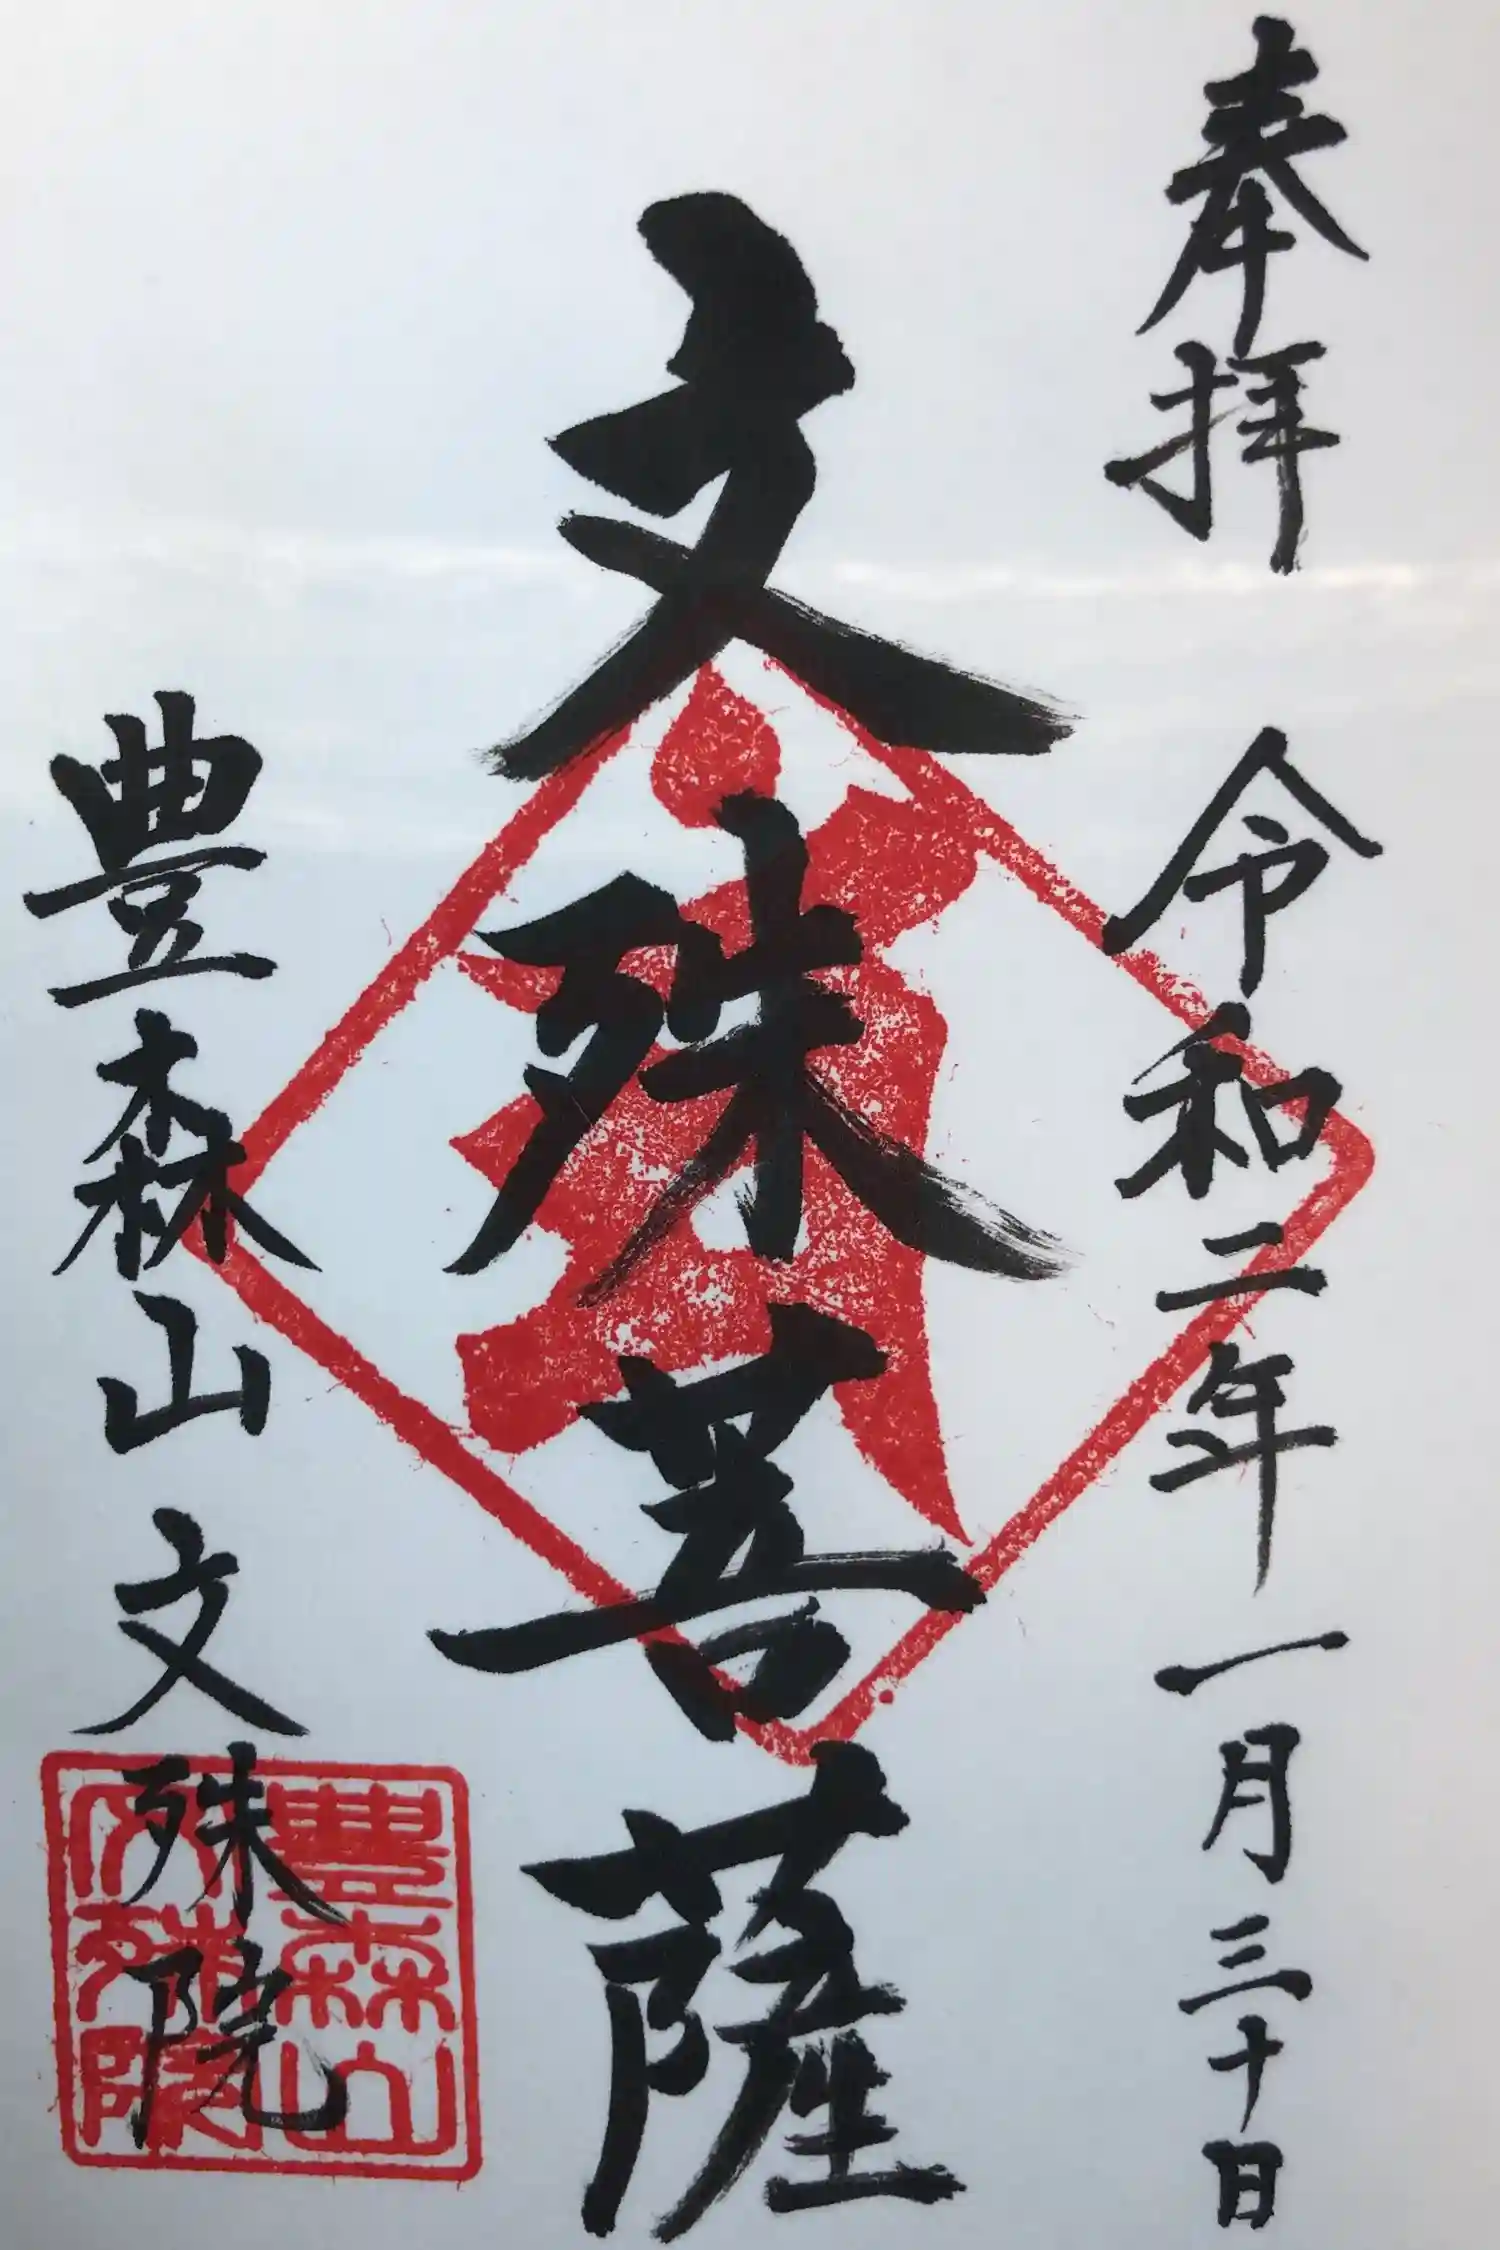 奉拝
令和二年一月三十日
文殊菩薩
豊森山 文殊院
豊森山
文殊院